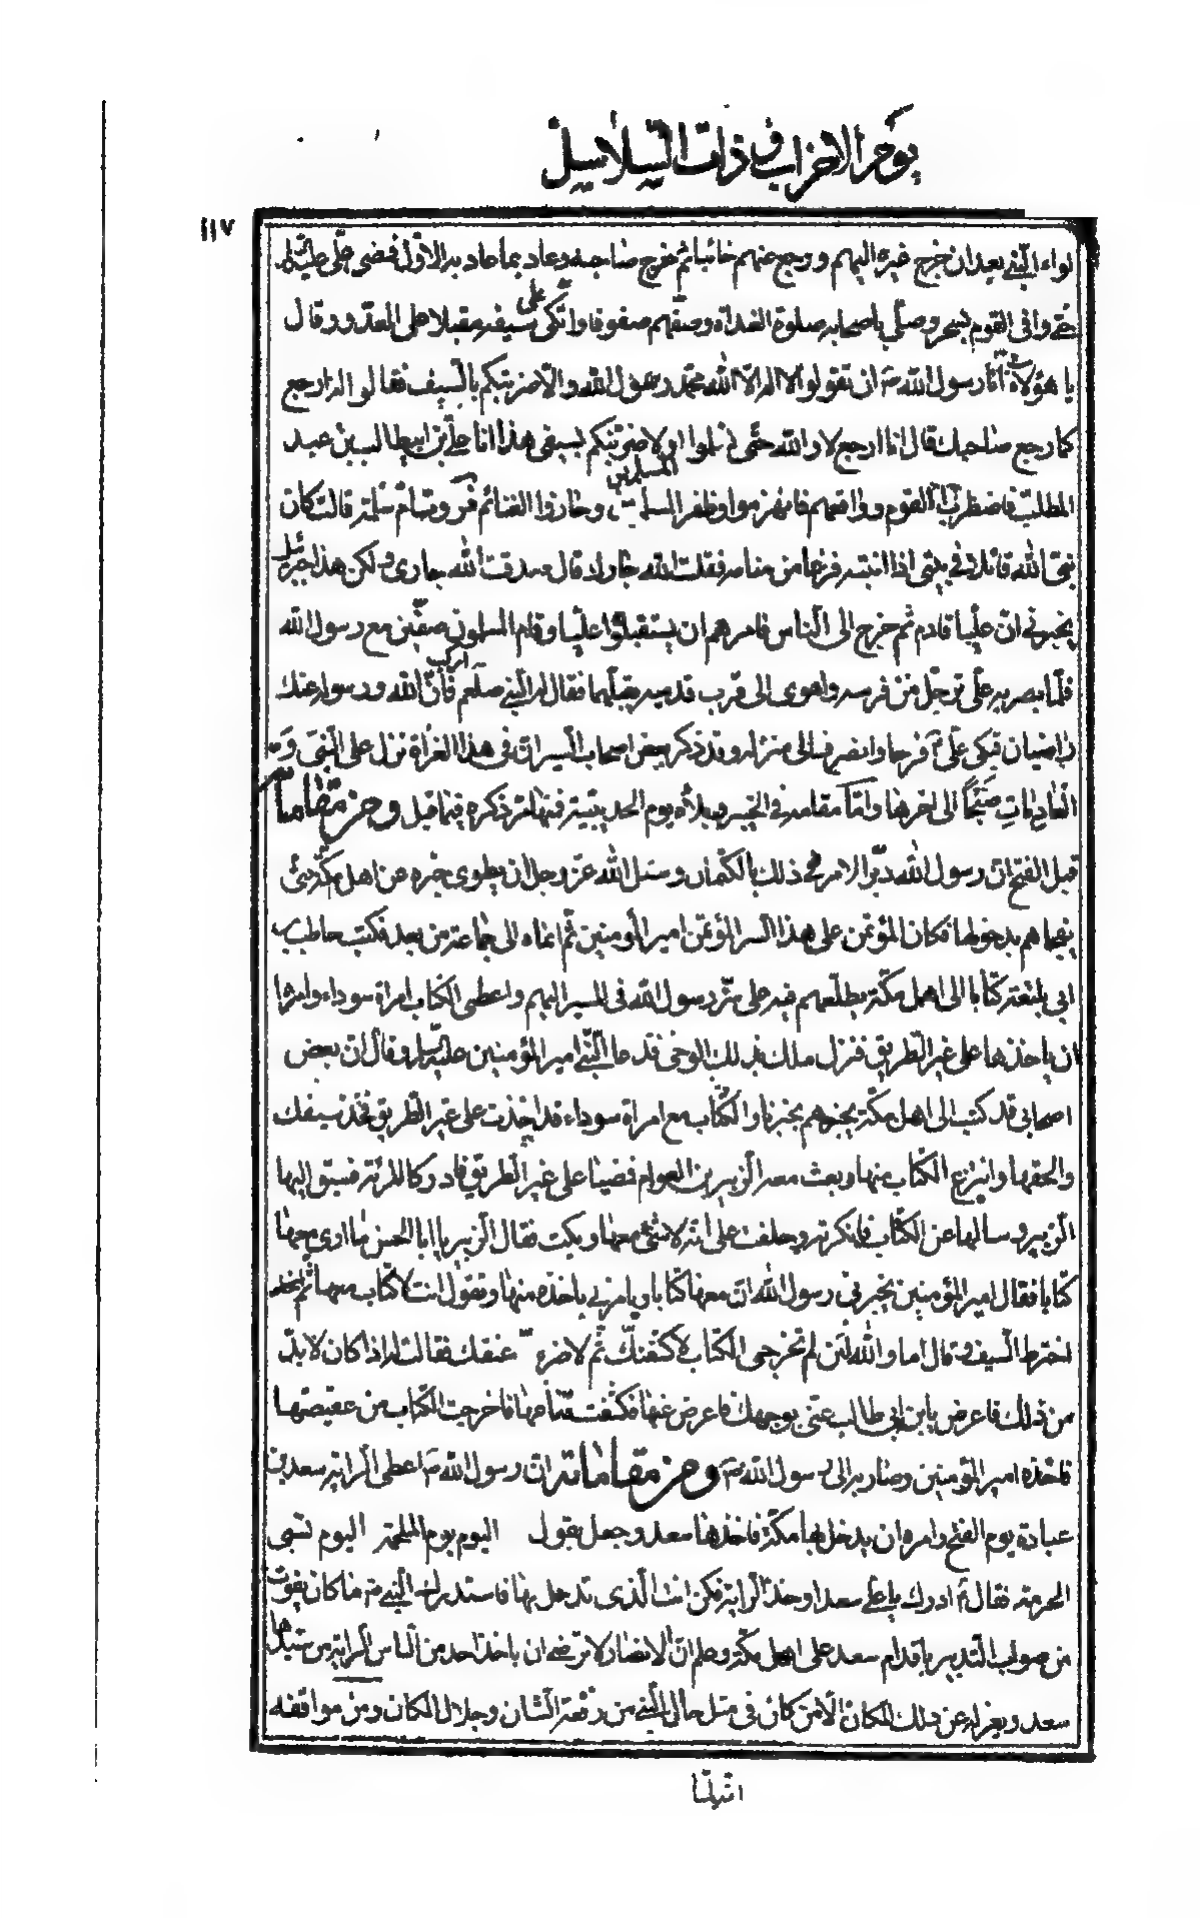 يوم الاحزاب فى ذات السّلاسل
١١٧
لواء النّبى بعد ان خرج غيره اليهم ورجع عنهم خائبا ثم خرج صاحبه وعاد بما عاد به الاوّل فمضى علىّ عليه السّلم
حتى وافى القوم بسحر وصلّى باصحابه صلوة الغداة وصفّهم صفوفا واتّكى على سيفه مقبلا على العدوّ وقال
يا هؤلاء انا رسول رسول الله ص ان تقولوا لا اله الّا الله محمّد رسول الله والّا ضربتكم بالسّيف فقالوا له ارجع
كما رجع صاحبك قال انا ارجع لا والله حتّى تسلموا او لاضربنّكم بسيفى هذا انا علىّ بن ابيطالب بن عبد
المطلب فاضطرب القوم وواقعهم فانهزموا وظفر المسلمين وحازوا الغنائم فروت امّ سلمة قالت كان
نبىّ الله قائلا فى بيتى اذا انتبه فزعا من منامه فقلت الله جارك قال صدقت الله جارى ولكن هذا جبرئيل
يخبرنى انّ عليّا قادم ثم خرج الى النّاس فامرهم ان يستقبلوا عليّا وقام المسلمون صفّين مع رسول الله
فلمّا بصر به علىّ ترجّل من فرسه واهوى الى قدميه يقبّلهما فقال له النّبى صلعم اركب فانّ الله ورسوله عنك
راضيان فبكى علىّ ع فرحا وانصرف الى منزله وقد ذكر بعض اصحاب السّير انّ فى هذا الغزاة نزل على النّبىّ
والعاديات ضبحًا الى اخرها وامّا مقامه فى الخيبر وبلاه يوم الحديبية فيهما مرّ ذكره فيما قبل ومن مقاماته
قبل الفتح انّ رسول الله دبّر الامر فى ذلك بالكتمان وسئل الله عزّ وجلّ ان يطوى خبره عن اهل مكّة حتى
يفجاهم بدخولها فكان المؤتمن على هذا السّر المؤتمن امير المؤمنين ثم انماه الى جماعة من بعد فكتب حاطب بن
ابى بلتعة كتابا الى اهل مكّة يطلعهم فيه على سرّ رسول الله فى المسير اليهم واعطى الكتاب امراة سوداء وامرها
ان ياخذها على غير الطّريق فنزل ملك بذلك الوحى فدعا النّبى امير المؤمنين عليه السّلم وقال ان بعض
اصحابى قد كتب الى اهل مكّة يخبرهم بخبرنا والكتاب مع امراة سوداء قد اخذت على غير الطّريق فخذ سيفك
والحقها وانتزع الكتاب منها وبعث معه الزّبير بن العوام فمضيا على غير الطّريق فادركا المرئة فسبق اليها
الزّبير وسالها عن الكتاب فانكرته وحلفت على انّه لا شئ معها وبكت فقال الزّبير يا ابا الحسن ما ارى معها
كتابا فقال امير المؤمنين يخبرنى رسول الله انّ معها كتابا ويامرنى باخذه منها وتقول انت لا كتاب معها ثم
اخترط السّيف وقال اما والله لئن لم تخرجى الكتاب لاكشفنّك ثم لاضربنّ عنقك فقالت له اذا كان لا بدّ
من ذلك فاعرض يا بن ابى طالب عنّى بوجهك فاعرض عنها فكشفت قناعها فاخرجت الكتاب من عقيصتها
فاخذه امير المؤمنين وصار به الى رسول الله ص ومن مقاماته انّ رسول الله ص اعطى الرّاية سعد بن
عبادة يوم الفتح وامره ان يدخل بها مكّة فاخذها سعد وجعل يقول اليوم يوم الملحمة اليوم تسبى
الحرمة فقال ع ادرك يا علىّ سعدا وخذ الرّاية فكن انت الّذى تدخل بها فاستدرك النّبى ص ما كان يفوت
من صواب التّدبير باقدام سعد على اهل مكّة وعلم انّ الانصار لا ترضى ان ياخذ احد من النّاس الرّاية من سيّدها
سعد ويعزله عن ذلك المكان الّا من كان فى مثل حال النّبى من رفعة الشّان وجلال المكان ومن مواقفه
انّه لمّا